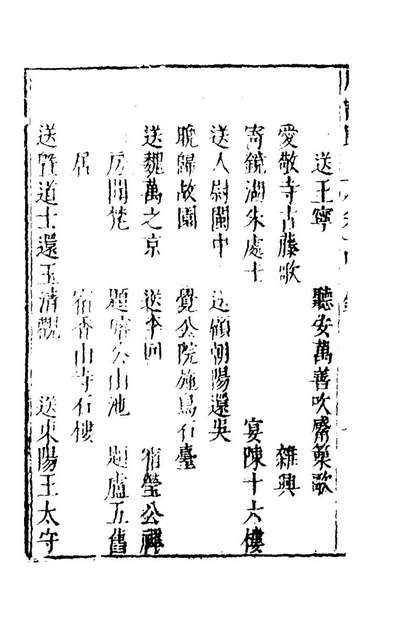 送王寧　聽安萬善吹觱篥歌
愛敬寺古藤歌　雜興
寄鏡湖朱處士　宴陳十六樓
送人尉閩中　送顧朝陽還吳
晚歸故園　覺公院施鳥石臺
送魏萬之京　送李回　宿瑩公禪
房聞梵　題璿公山池　題盧五舊
居　宿香山寺石樓
送暨道士還玉清觀　送東陽王太守